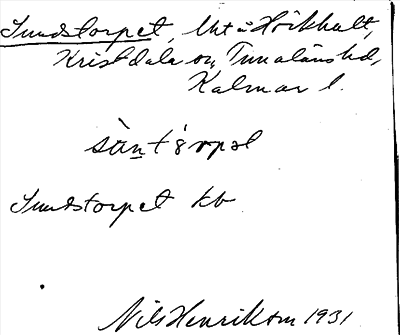 Sundstorpet, lht å Hörkhult,
Kristdala sn, Tunaläns hd,
Kalmar l.
sùn̠tǒrpəl
Sundstorpet kb
Nils Henrikson 1931